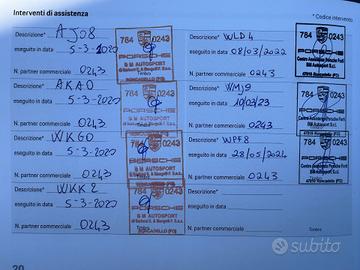 Interventi di assistenza
* Codice intervento
Descrizione* AJ08
eseguito in data 5-3-2020
N. partner commerciale 0243
784 0243
PORSCHE
B M AUTOSPORT
RONCADELLE (PD)
Timbro
Descrizione* AKA0
eseguito in data 5-3-2020
N. partner commerciale 0243
784 0243
PORSCHE
B M AUTOSPORT
Descrizione* WKG0
eseguito in data 5-3-2020
N. partner commerciale 0243
784 0243
PORSCHE
B M AUTOSPORT
Descrizione* WKK2
eseguito in data 5-3-2020
N. partner commerciale 0243
784 0243
PORSCHE
B M AUTOSPORT
Descrizione* WLD4
eseguito in data 08/03/2022
N. partner commerciale 0243
784 0243
PORSCHE
Timbro
Descrizione* WMJ9
eseguito in data 10/03/23
N. partner commerciale 0243
784 0243
PORSCHE
Descrizione* WPF8
eseguito in data 28/05/2024
N. partner commerciale 0243
784 0243
PORSCHE
Descrizione*
eseguito in data
N. partner commerciale
Timbro
20
subito